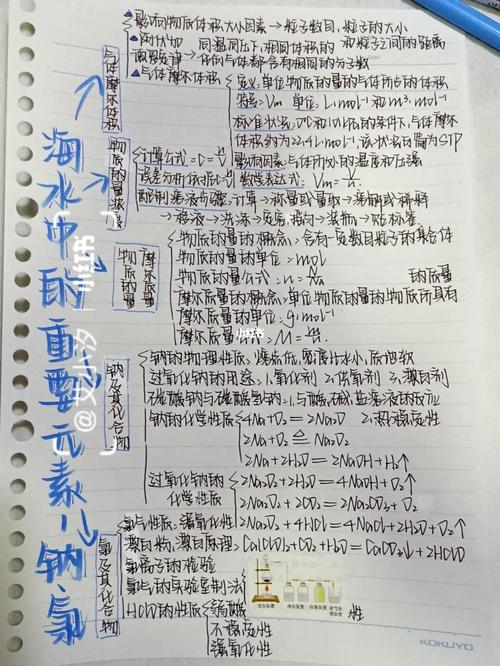 海水中的重要元素—钠、氯
@安小多 小红书
气体摩尔体积
影响物质体积大小因素→粒子数目,粒子的大小
和粒子之间的距离
同温同压下,相同体积的
任何气体都含有相同的分子数
气体摩尔体积
定义:单位物质的量的气体所占的体积
符号:Vm 单位:L·mol⁻¹和m³·mol⁻¹
标准状况:0℃和101kPa的条件下,气体摩尔
体积约为22.4L·mol⁻¹,该状况可简为STP
影响因素:气体所处的温度和压强
数学表达式:Vm=V/n
物质的量浓度
计算公式=C=n/V
误差分析依据C=
配制溶液步骤:计算→称量或量取→溶解或稀释
→移液→洗涤→定容,摇匀→装瓶→贴标签
物质的量 摩尔质量
物质的量的概念:含有一定数目粒子的集合体
物质的量的单位=mol
物质的量公式=n=N/NA
摩尔质量的概念:单位物质的量的物质所具有
的质量
摩尔质量的单位:g·mol⁻¹
摩尔质量公式=M=m/n
钠及其化合物
钠的物理性质:熔点低,密度比水小,质地软
过氧化钠的用途:1.氧化剂 2.供氧剂 3.漂白剂
碳酸钠与碳酸氢钠:1.与酸,碱,盐溶液的反应
2.热稳定性
钠的化学性质
4Na+O₂=2Na₂O
2Na+O₂≜Na₂O₂
2Na+2H₂O=2NaOH+H₂↑
过氧化钠的
化学性质
2Na₂O₂+2CO₂=2Na₂CO₃+O₂
2Na₂O₂+4HCl=4NaCl+2H₂O+O₂↑
氯及其化合物
氯气性质:强氧化性
漂白粉,漂白原理:Ca(ClO)₂+CO₂+H₂O=CaCO₃↓+2HClO
氯离子的检验
氯气的实验室制法
发生装置 净化装置 收集装置 尾气处理装置
HClO的性质
弱酸性
不稳定性
强氧化性
KOKUYO